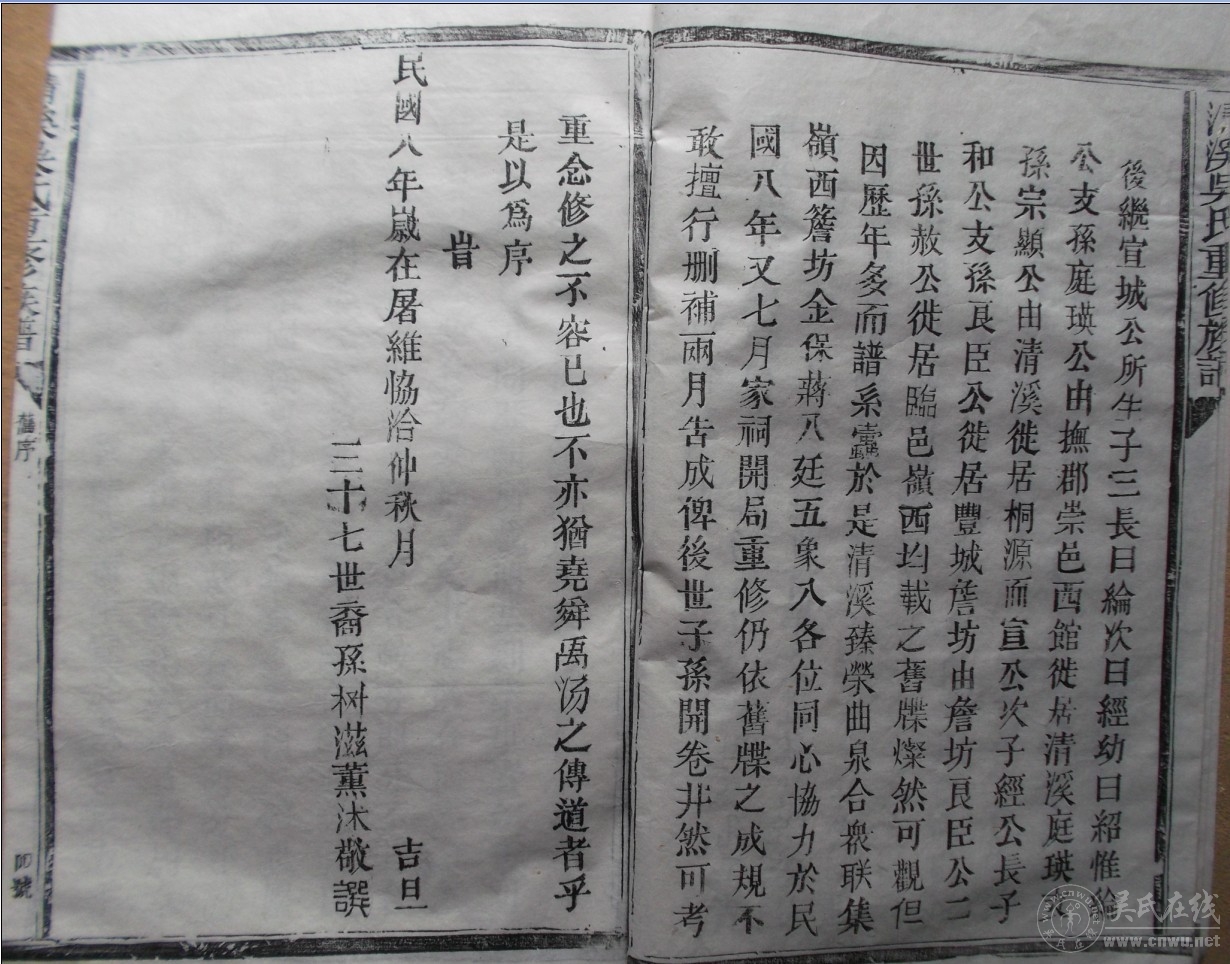 清溪吳氏重修族譜
後繼宣城公所生子三長曰綸次曰經幼曰紹惟綸
公支孫庭瑛公由撫郡崇邑西館徙居清溪庭瑛
孫宗顯公由清溪徙居桐源而宣公次子經公長子
和公支孫良臣公徙居豐城詹坊由詹坊良臣公二
世孫赦公徙居臨邑嶺西均載之舊牒燦然可觀但
因歷年多而譜系蠹於是清溪臻榮曲泉合眾联集
嶺西簷坊金保蔣八廷五象八各位同心協力於民
國八年又七月家祠開局重修仍依舊牒之成規不
敢擅行刪補兩月告成俾後世子孫開卷井然可考
重念修之不容已也不亦猶堯舜禹汤之傳道者乎
是以為序
旹
民國八年嵗在屠維協洽仲秋月 吉旦
三十七世裔孫树滋薰沐敬譔
吳氏重修族譜
舊序
四號
吴氏在线
www.cnwu.net